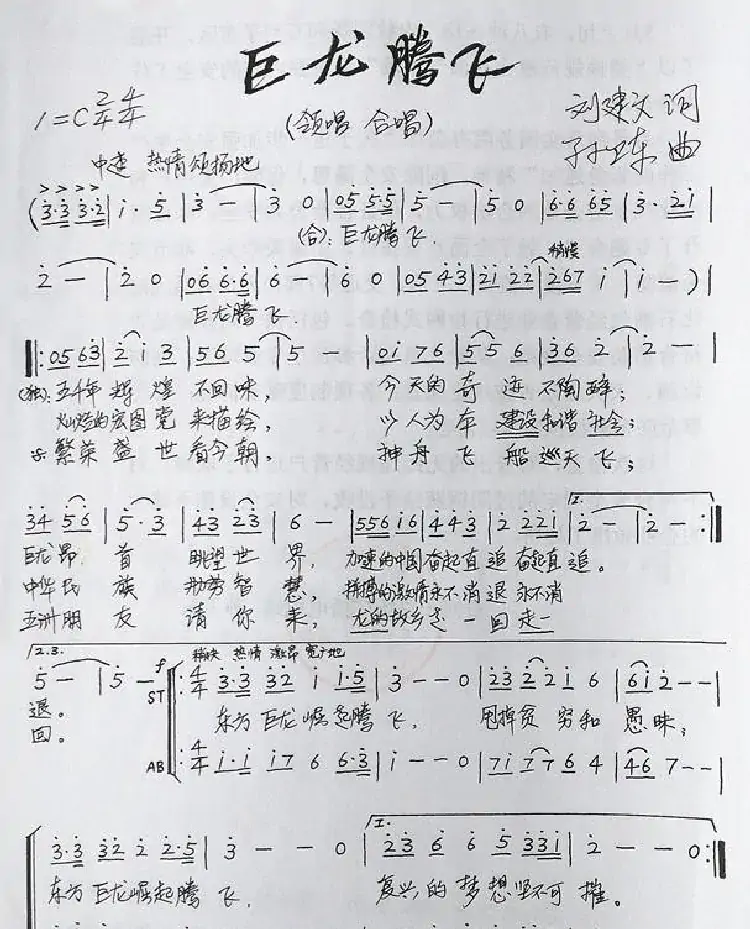 巨龙腾飞
1=C 2/4 4/4
(领唱 合唱)
刘建文 词
孙卫东 曲
中速 热情颂扬地
(3·3 3·2 | i· 5 | 3 — | 3 0 | 05 5·5 | 5 — | 5 0 | 6·6 65 | 3· 2i |
(合): 巨龙腾飞.
稍慢
2 — | 2 0 | 06 6·6 | 6 — | 6 0 | 05 43 | 2i 22 | 267 i | i — ) |
巨龙腾飞.
‖: 05 63 | 2 i 3 | 56 5 | 5 — | 0i 76 | 5 5 6 | 36 2 | 2 — |
(独): 五千年 辉 煌 不回味, 今天的 奇 迹 不陶醉;
灿烂的宏图 党 来描绘, 以人为 本 建设和谐 社会;
繁荣 盛 世 看今朝, 神舟 飞 船 巡天 飞;
34 56 | 5· 3 | 43 23 | 6 — | 556 i6 | 4 43 | 2 22i | 2 — | 2 — :‖
巨龙 昂 首 眺望 世 界, 加速的中国 奋起直 追 奋起直 追。
中华 民 族 勤劳 智 慧, 拼搏的激情 永不 消 退 永不消
五洲 朋 友 请 你 来, 龙的故乡 走 一 回 走一
12.3. 稍快 热情 激昂 宽广地
5 — | 5 — f ST 4/4 3·3 32 i i·5 | 3 — — 0 | 23 2 2i 6 | 6i 2 — — |
退。 东方 巨龙 崛起腾 飞. 甩掉贫 穷和 愚昧;
回。
AB 4/4 i·i i7 6 6·3 | i — — 0 | 7i 7 76 4 | 46 7 — — |
1.
3·3 32 2 2·5 | 3 — — 0 | 23 6 6 5 33i | 2 — — 0 :‖
东方 巨龙 崛起腾 飞. 复兴 的 梦 想坚不可 摧。